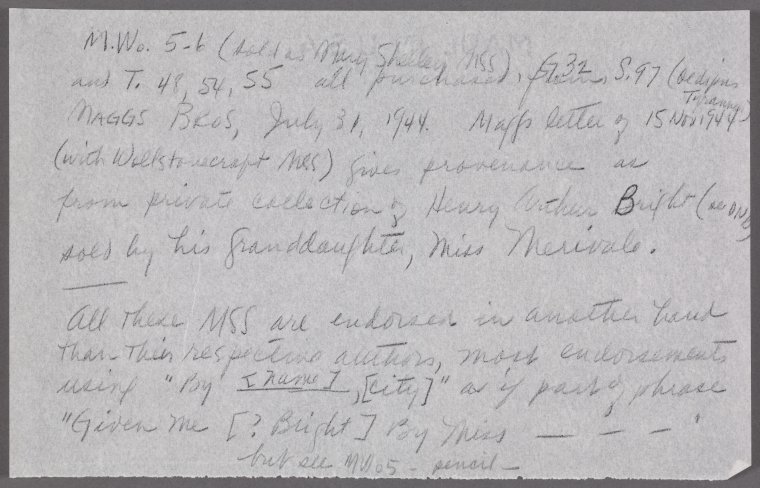 M.Wo. 5-6 (sold as Mary Shelley MSS), G.32, S.97 (Oedipus Tyrannus)
and T. 48, 54, 55 all purchased from
MAGGS BROS, July 31, 1944. Maggs letter of 15 Nov 1944
(with Wollstonecraft MSS) gives provenance as
from private collection of Henry Arthur Bright (see DNB)
sold by his granddaughter, Miss Merivale.
All these MSS are endorsed in another hand
than their respective authors, most endorsements
using "By [Name], [City]" as if part of phrase
"Given me [? Bright] By Miss — — — "
but see MWo5 - pencil -